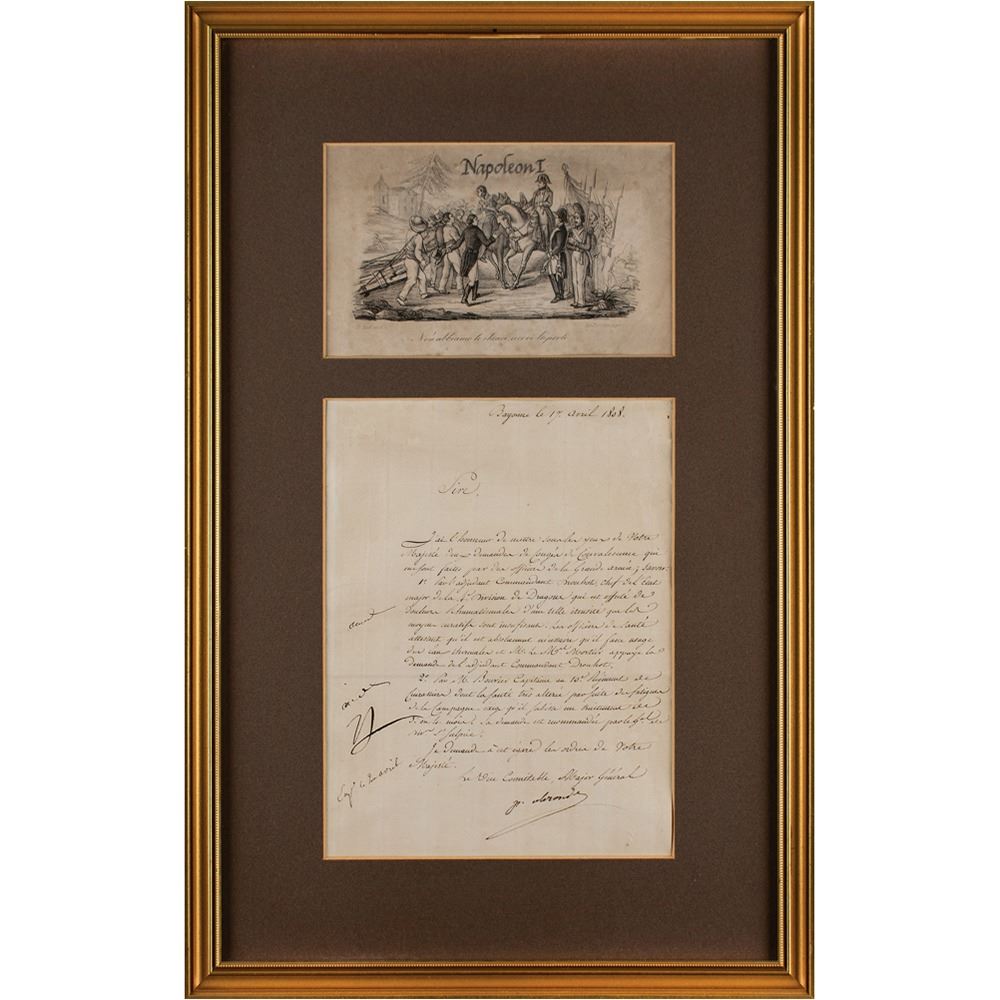 Napoleon I
Noi abbiamo le
Bayonne le 17 avril 1808.
Sire,
J'ai l'honneur de mettre sous les yeux de Votre
Majesté des demandes de congés de Convalescence qui
ont faites par des officiers de la Grande armée; Savoir:
1º Par l'adjudant Commandant Drouhot, chef de l'Etat
major de la 4e Division de Dragons qui est affecté de
douleurs Rhumatismales d'une telle intensité que les
moyens curatifs sont insuffisants. Les officiers de Santé
attestent qu'il est absolument nécessaire qu'il fasse usage
des eaux thermales et M. le Mal Mortier appuye la
demande de l'adjudant Commandant Drouhot.
2º Par M. Bouvier Capitaine au 10e Régiment de
Cuirassiers dont la Santé très altérée par suite des fatigues
de la Campagne exige qu'il subisse un traitement
de mois. Sa demande est recommandée par le Gal de
Don St Sulpice.
Je demande à cet égard les ordres de Votre
Majesté.
Le Vice Connétable Major Général
accordé
N
avril